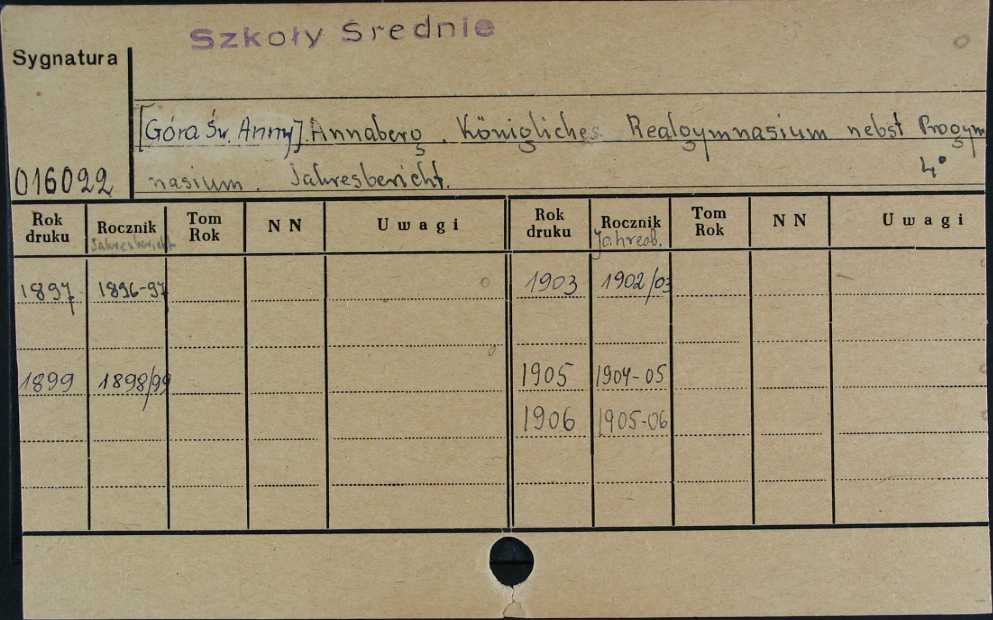 Szkoły Średnie
Sygnatura
[Góra Św. Anny]. Annaberg. Königliches Realgymnasium nebst Progym
016022 nasium. Jahresbericht. 4°
Rok druku Rocznik Jahresbericht Tom Rok NN Uwagi Rok druku Rocznik Jahresb. Tom Rok NN Uwagi
1897 1896-97 1903 1902/03
1899 1898/99 1905 1904-05
1906 1905-06